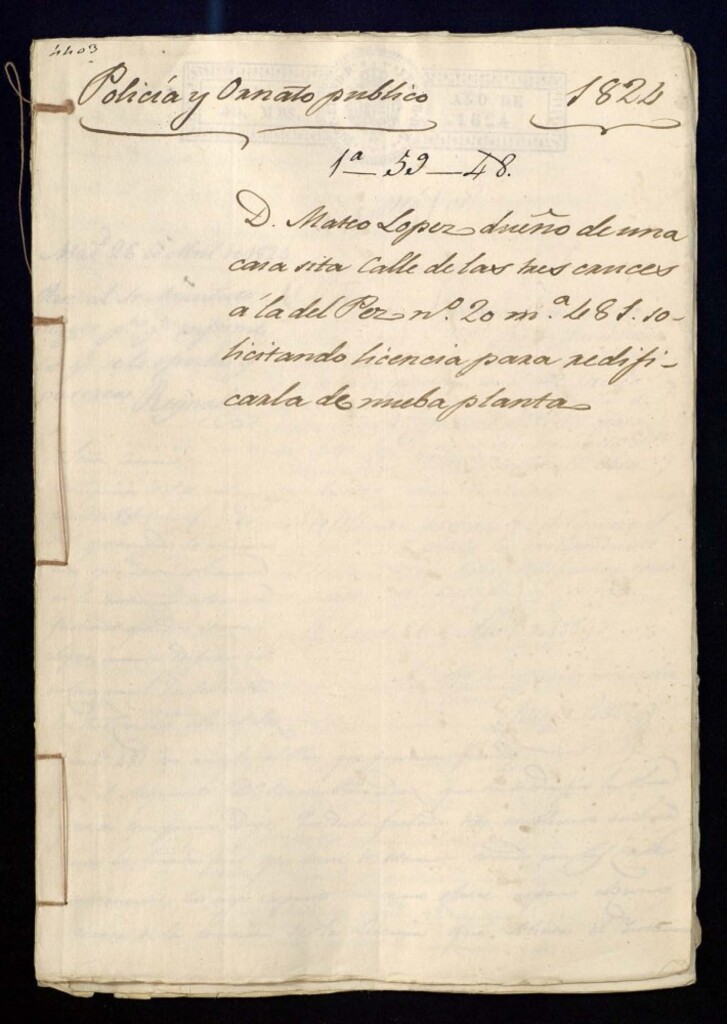 4403
Policía y Ornato publico 1824
1ª—59—48.
D. Mateo Lopez dueño de una
casa sita Calle de las tres cruces
á la del Pez nº. 20 m.ª 481. so-
licitando licencia para redifi-
carla de nueba planta